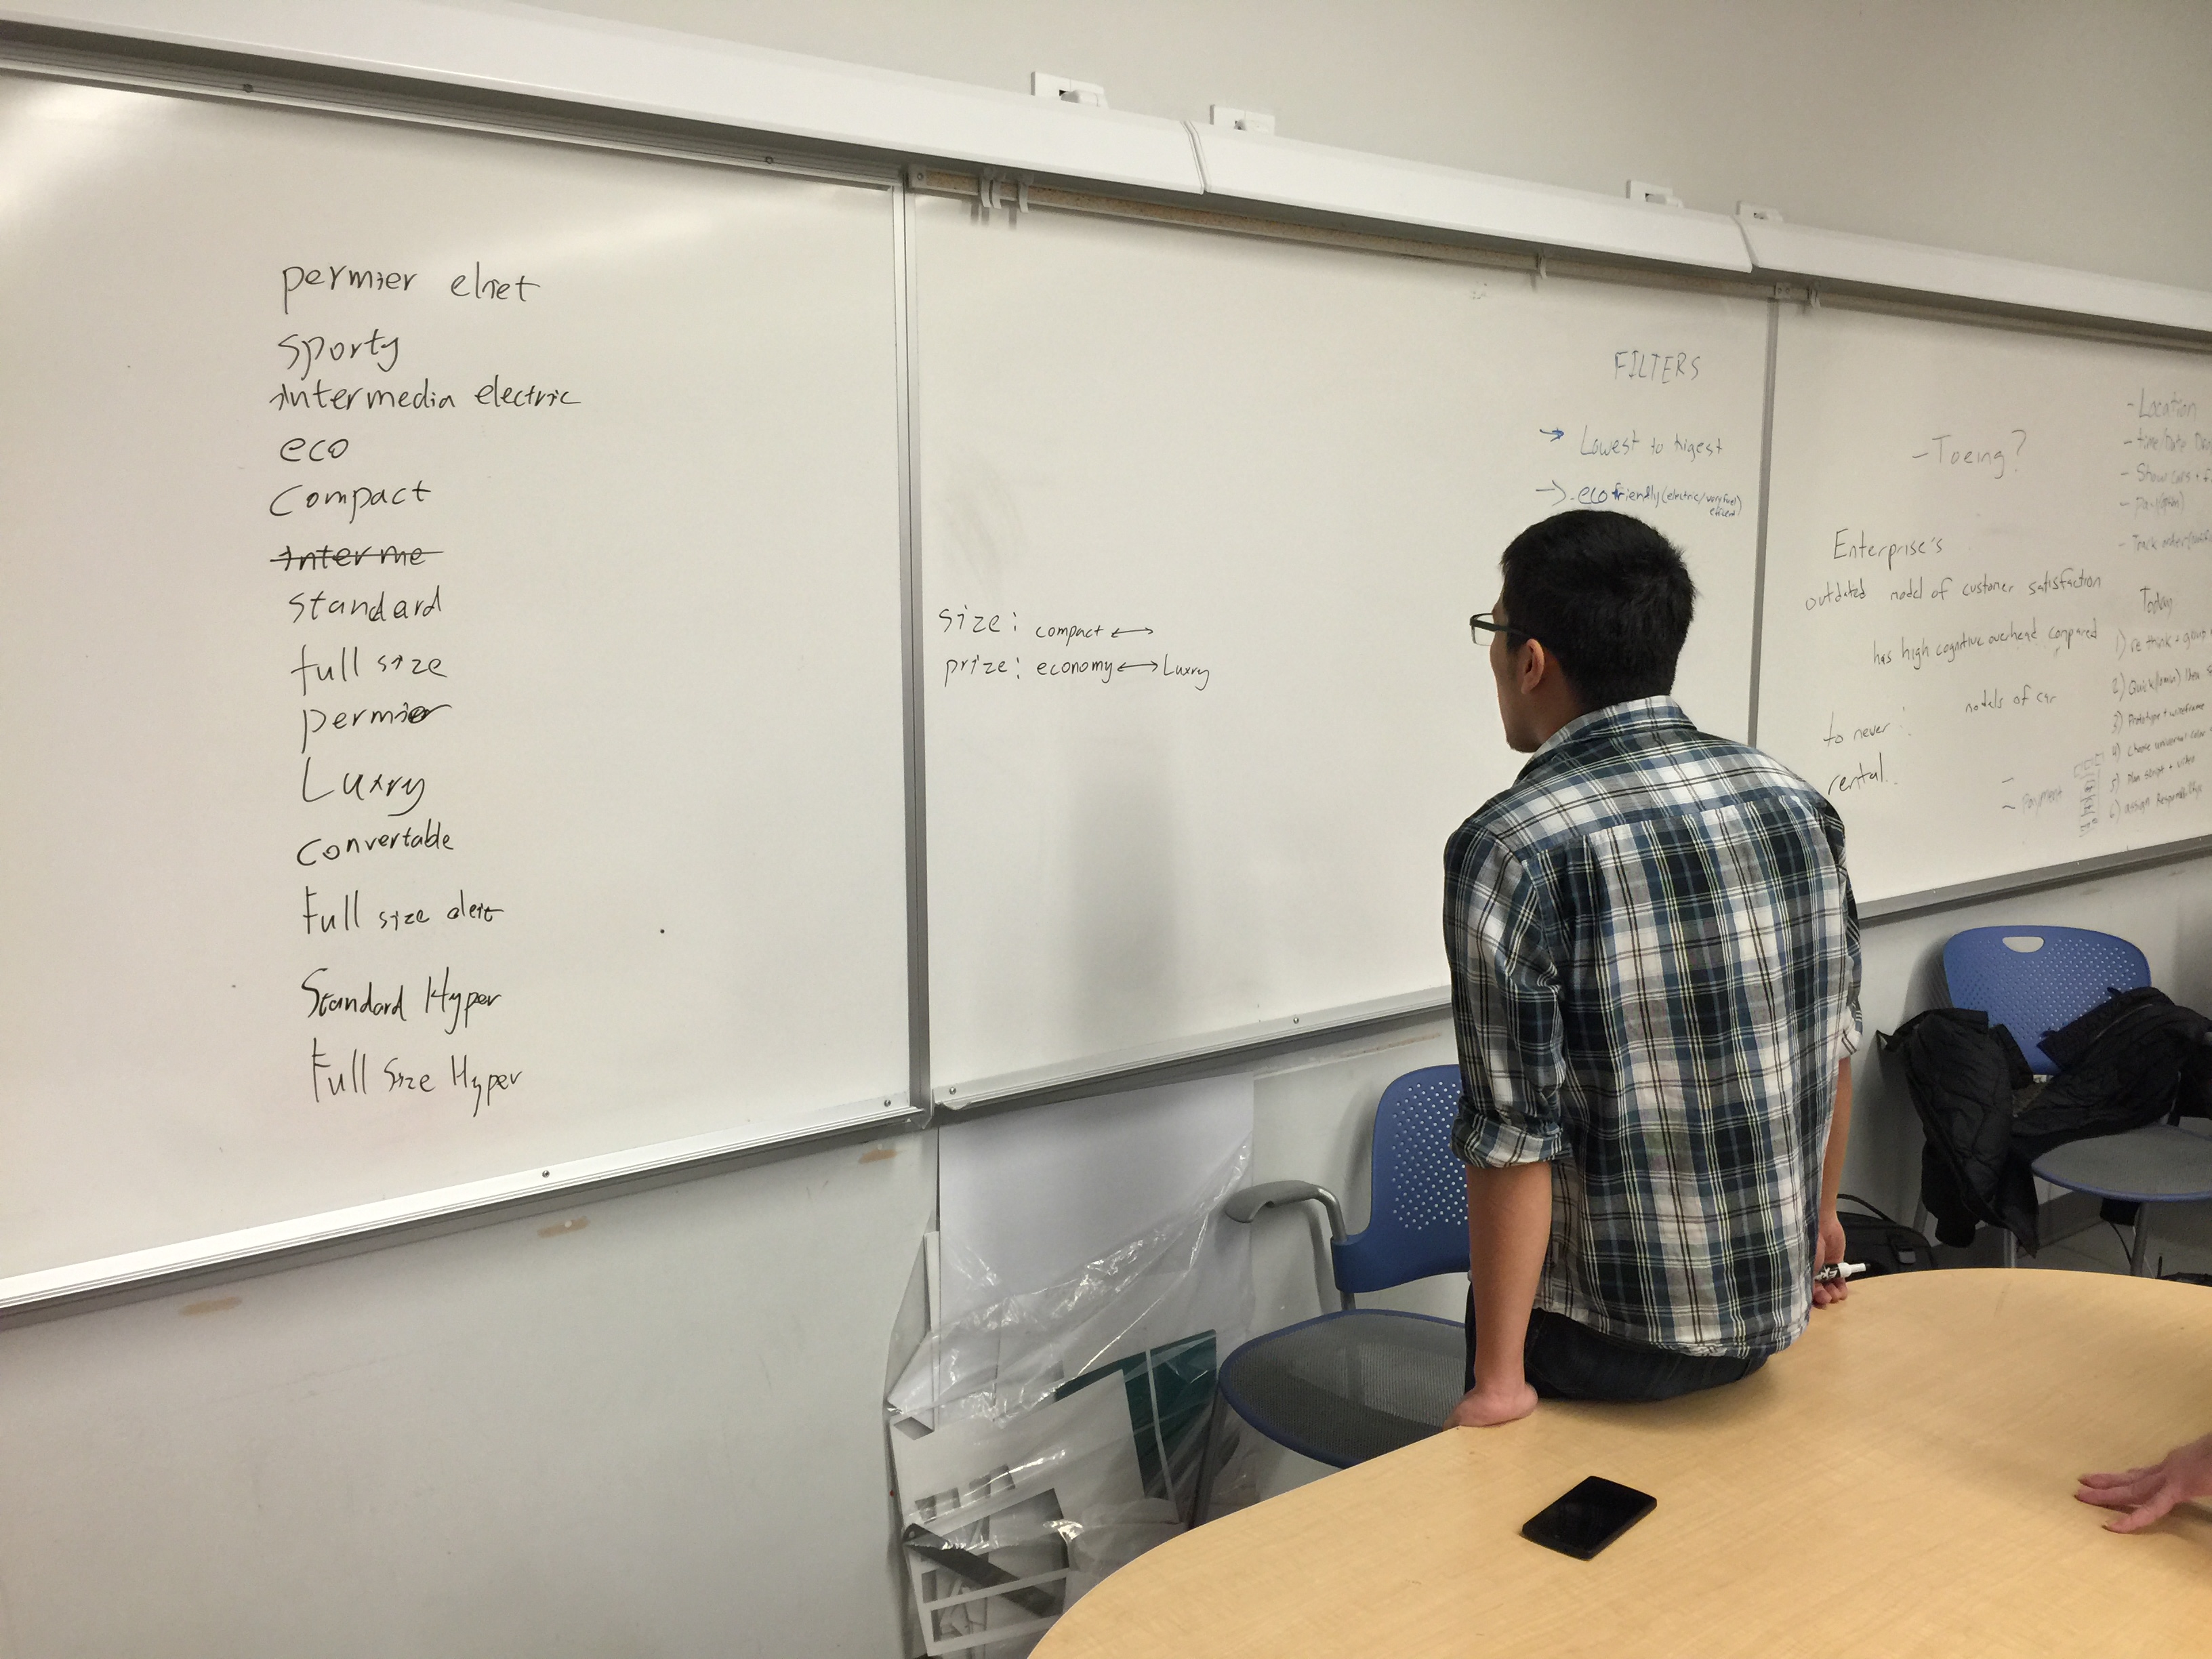 permier elriet
sporty
intermedia electric
eco
Compact
Interme
standard
full size
permier
Luxry
convertable
Full size
Standard Hyper
Full Size Hyper
size: compact ↔
prize: economy ↔ Luxry
FILTERS
→ Lowest to higest
→ eco friendly (electric/very fuel
efficient)
- Toeing?
Enterprise's
outdated model of customer satisfaction
has high cognitive overhead compared
to newer models of car
rental.
~ Payment
- Location
- time/Date
- Show cars +
- Track order
Today
1) re think + group
2) Quick Idea
3) Prototype + wireframe
4) Choose universal color
5) Plan script + video
6) assign Responsibility